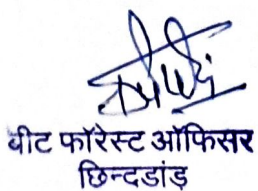 बीट फॉरेस्ट ऑफिसर
छिन्दडांड़